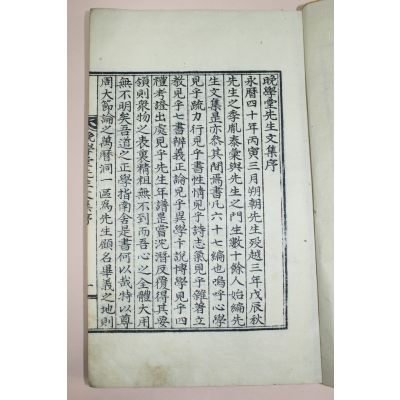 晩學堂先生文集序
永曆四十年丙寅三月朔朝先生歿越三年戊辰秋
先生之季胤泰彙與先生之門生數十餘人始編先
生文集是亦參其間焉書凡六十七編也嗚呼心學
見乎疏力行見乎書性情見乎詩志氣見乎雜著立
敎見乎七書辨義正論見乎異學卞說博學見乎四
種考證出處見乎先生年譜罡嘗沉潛反覆得其要
領則衆物之表裏精粗無不到而吾心之全體大用
無不明矣吾道之正學指南舍是書何以哉特以尊
周大節論之萬曆洞一區爲先生顧名畢義之地則
晩學堂先生文集序
一